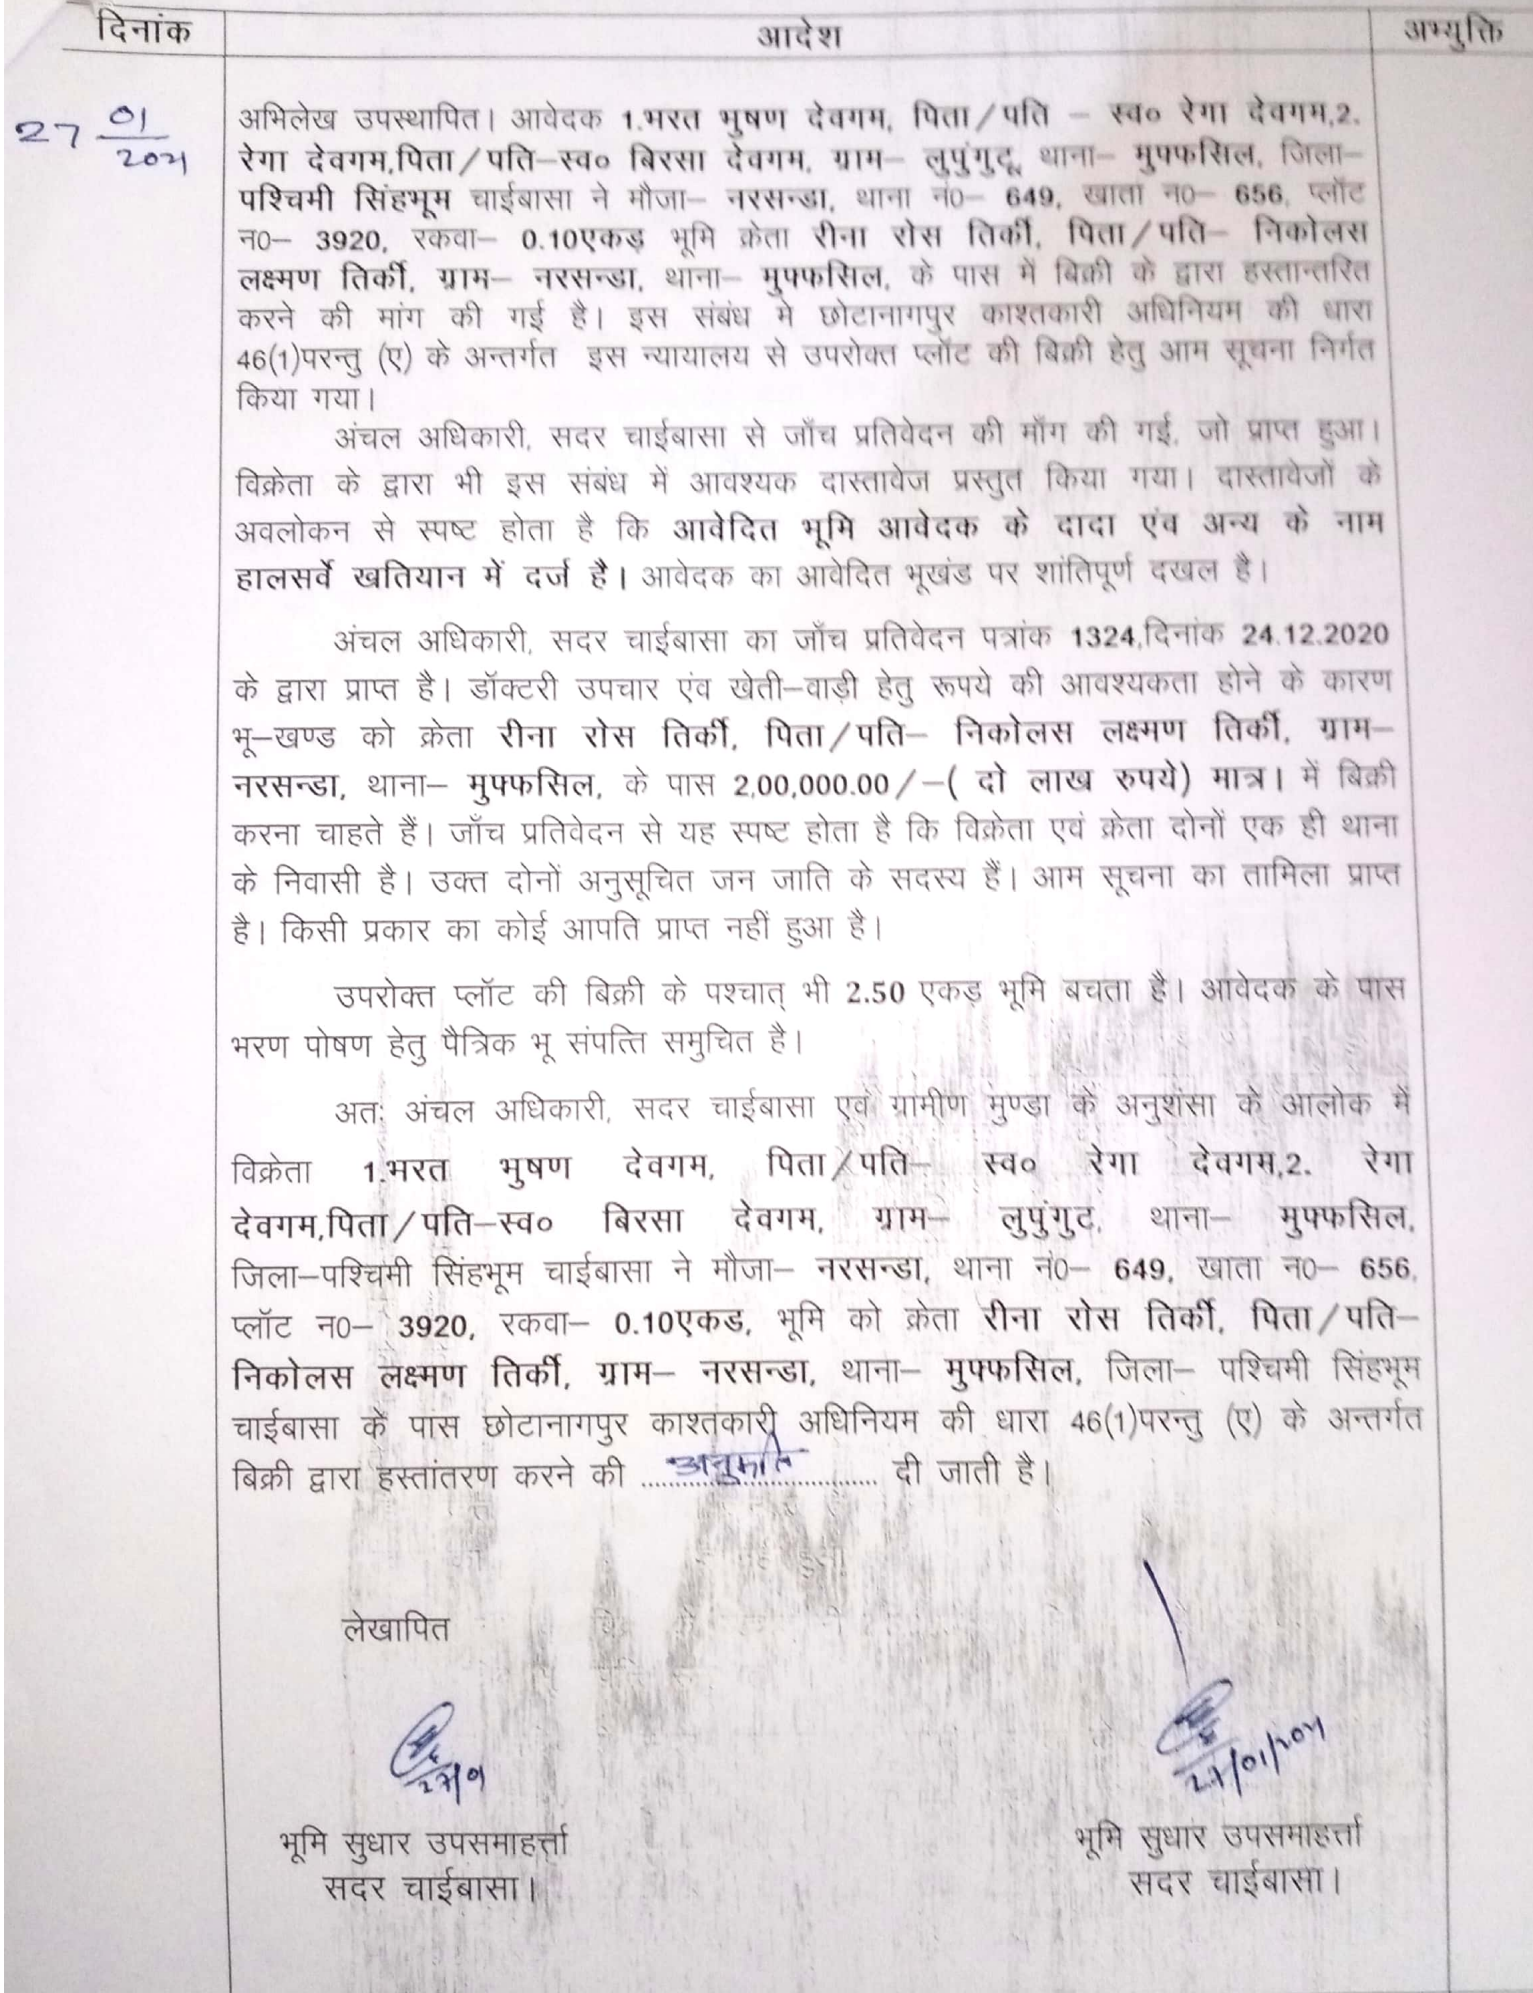 दिनांक
आदेश
अभ्युक्ति
27 01/2021
अभिलेख उपस्थापित। आवेदक 1.भरत भुषण देवगम, पिता/पति – स्व० रेगा देवगम,2.
रेगा देवगम,पिता/पति–स्व० बिरसा देवगम, ग्राम– लुपुंगुटू, थाना– मुफ्फसिल, जिला–
पश्चिमी सिंहभूम चाईबासा ने मौजा– नरसन्डा, थाना नं0– 649, खाता न0– 656, प्लॉट
न0– 3920, रकवा– 0.10एकड़ भूमि क्रेता रीना रोस तिर्की, पिता/पति– निकोलस
लक्ष्मण तिर्की, ग्राम– नरसन्डा, थाना– मुफ्फसिल, के पास में बिक्री के द्वारा हस्तान्तरित
करने की मांग की गई है। इस संबंध मे छोटानागपुर काश्तकारी अधिनियम की धारा
46(1)परन्तु (ए) के अन्तर्गत इस न्यायालय से उपरोक्त प्लॉट की बिक्री हेतु आम सूचना निर्गत
किया गया।
अंचल अधिकारी, सदर चाईबासा से जाँच प्रतिवेदन की माँग की गई, जो प्राप्त हुआ।
विक्रेता के द्वारा भी इस संबंध में आवश्यक दास्तावेज प्रस्तुत किया गया। दास्तावेजों के
अवलोकन से स्पष्ट होता है कि आवेदित भूमि आवेदक के दादा एंव अन्य के नाम
हालसर्वे खतियान में दर्ज है। आवेदक का आवेदित भूखंड पर शांतिपूर्ण दखल है।
अंचल अधिकारी, सदर चाईबासा का जाँच प्रतिवेदन पत्रांक 1324,दिनांक 24.12.2020
के द्वारा प्राप्त है। डॉक्टरी उपचार एंव खेती–वाड़ी हेतु रूपये की आवश्यकता होने के कारण
भू–खण्ड को क्रेता रीना रोस तिर्की, पिता/पति– निकोलस लक्ष्मण तिर्की, ग्राम–
नरसन्डा, थाना– मुफ्फसिल, के पास 2,00,000.00/–( दो लाख रुपये) मात्र। में बिक्री
करना चाहते हैं। जाँच प्रतिवेदन से यह स्पष्ट होता है कि विक्रेता एवं क्रेता दोनों एक ही थाना
के निवासी है। उक्त दोनों अनुसूचित जन जाति के सदस्य हैं। आम सूचना का तामिला प्राप्त
है। किसी प्रकार का कोई आपति प्राप्त नहीं हुआ है।
उपरोक्त प्लॉट की बिक्री के पश्चात् भी 2.50 एकड़ भूमि बचता है। आवेदक के पास
भरण पोषण हेतु पैत्रिक भू संपत्ति समुचित है।
अतः अंचल अधिकारी, सदर चाईबासा एवं ग्रामीण मुण्डा के अनुशंसा के आलोक में
विक्रेता 1.भरत भुषण देवगम, पिता/पति– स्व० रेगा देवगम,2. रेगा
देवगम,पिता/पति–स्व० बिरसा देवगम, ग्राम– लुपुंगुट, थाना– मुफ्फसिल,
जिला–पश्चिमी सिंहभूम चाईबासा ने मौजा– नरसन्डा, थाना नं0– 649, खाता न0– 656,
प्लॉट न0– 3920, रकवा– 0.10एकड, भूमि को क्रेता रीना रोस तिर्की, पिता/पति–
निकोलस लक्ष्मण तिर्की, ग्राम– नरसन्डा, थाना– मुफ्फसिल, जिला– पश्चिमी सिंहभूम
चाईबासा के पास छोटानागपुर काश्तकारी अधिनियम की धारा 46(1)परन्तु (ए) के अन्तर्गत
बिक्री द्वारा हस्तांतरण करने की ....अनुमति.... दी जाती है।
लेखापित
27/01
27/01/2021
भूमि सुधार उपसमाहर्त्ता
सदर चाईबासा।
भूमि सुधार उपसमाहर्त्ता
सदर चाईबासा।